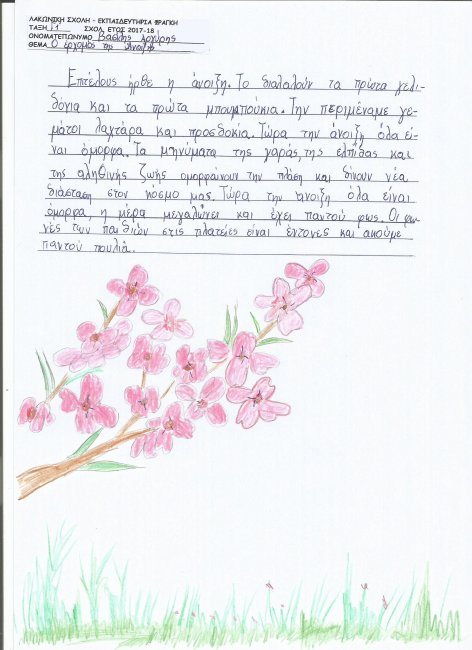 ΛΑΚΩΝΙΚΗ ΣΧΟΛΗ - ΕΚΠΑΙΔΕΥΤΗΡΙΑ ΦΡΑΓΚΗ
ΤΑΞΗ Γ1 ΣΧΟΛ. ΕΤΟΣ 2017-18
ΟΝΟΜΑΤΕΠΩΝΥΜΟ Βασίλης Αργύρης
ΘΕΜΑ Ο ερχομός της Άνοιξης
Επιτέλους ήρθε η άνοιξη. Το διαλαλούν τα πρώτα χελι-
δόνια και τα πρώτα μπουμπούκια. Την περιμέναμε γε-
μάτοι λαχτάρα και προσδοκία. Τώρα την άνοιξη όλα εί-
ναι όμορφα. Τα μηνύματα της χαράς, της ελπίδας και
της αληθινής ζωής ομορφαίνουν την πλάση και δίνουν νέα
διάσταση στον κόσμο μας. Τώρα την άνοιξη όλα είναι
όμορφα, η μέρα μεγαλώνει και έχει παντού φως. Οι φω-
νές των παιδιών στις πλατείες είναι έντονες και ακούμε
παντού πουλιά.